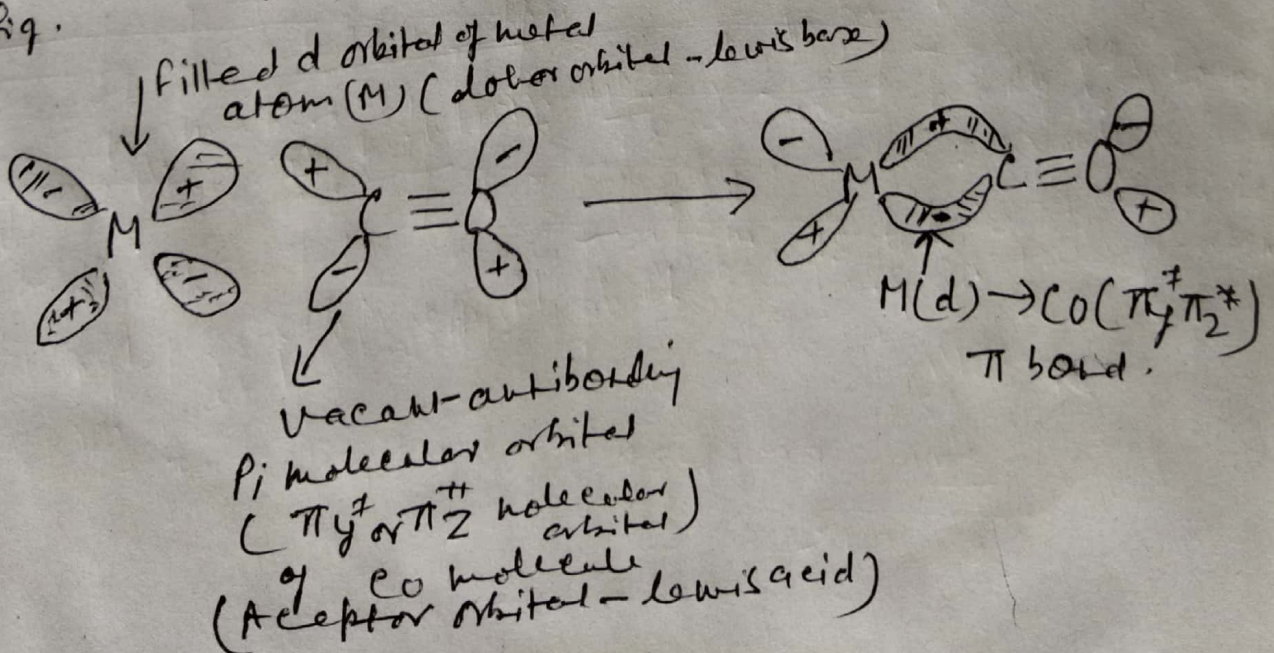 Fig.
filled d orbital of metal
atom (M) (donor orbital - lewis base)
+ - M + -
+ - C ≡ O - +
- + M + - C ≡ O - +
M(d) → CO(πy* πz*)
π bond.
vacant-antibonding
Pi molecular orbital
(πy* or πz* molecular
orbital)
of CO molecule
(Aceptor orbital - lewis acid)